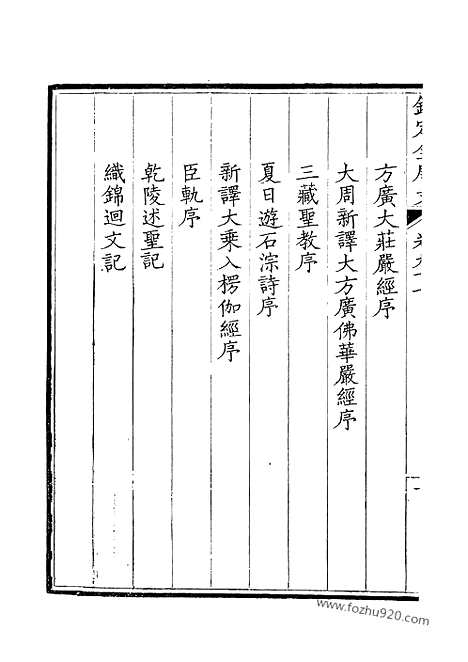 方廣大莊嚴經序
大周新譯大方廣佛華嚴經序
三藏聖教序
夏日遊石淙詩序
新譯大乘入楞伽經序
臣軌序
乾陵述聖記
織錦迴文記
www.fozhu920.com